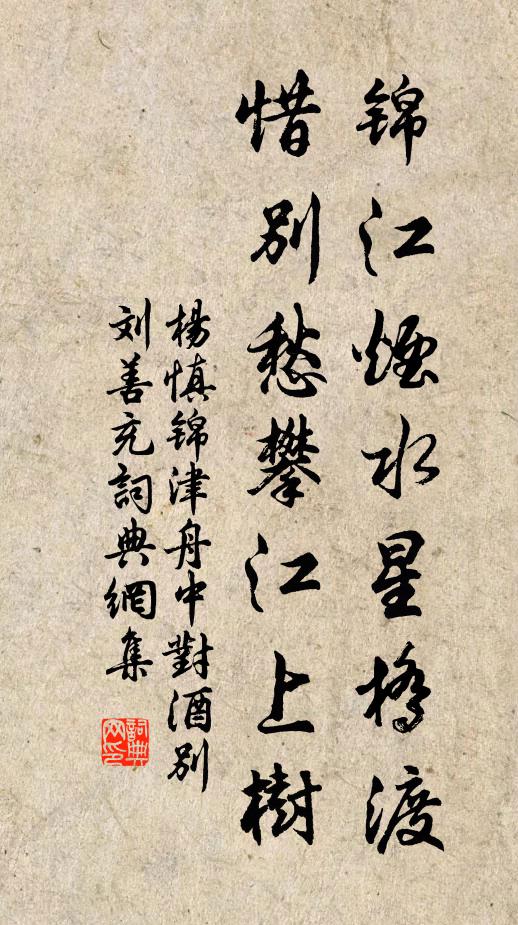 锦江烟水星桥渡
惜别愁攀江上樹
楊慎锦津舟中對酒别
刘善充詞典網集
詞典网印